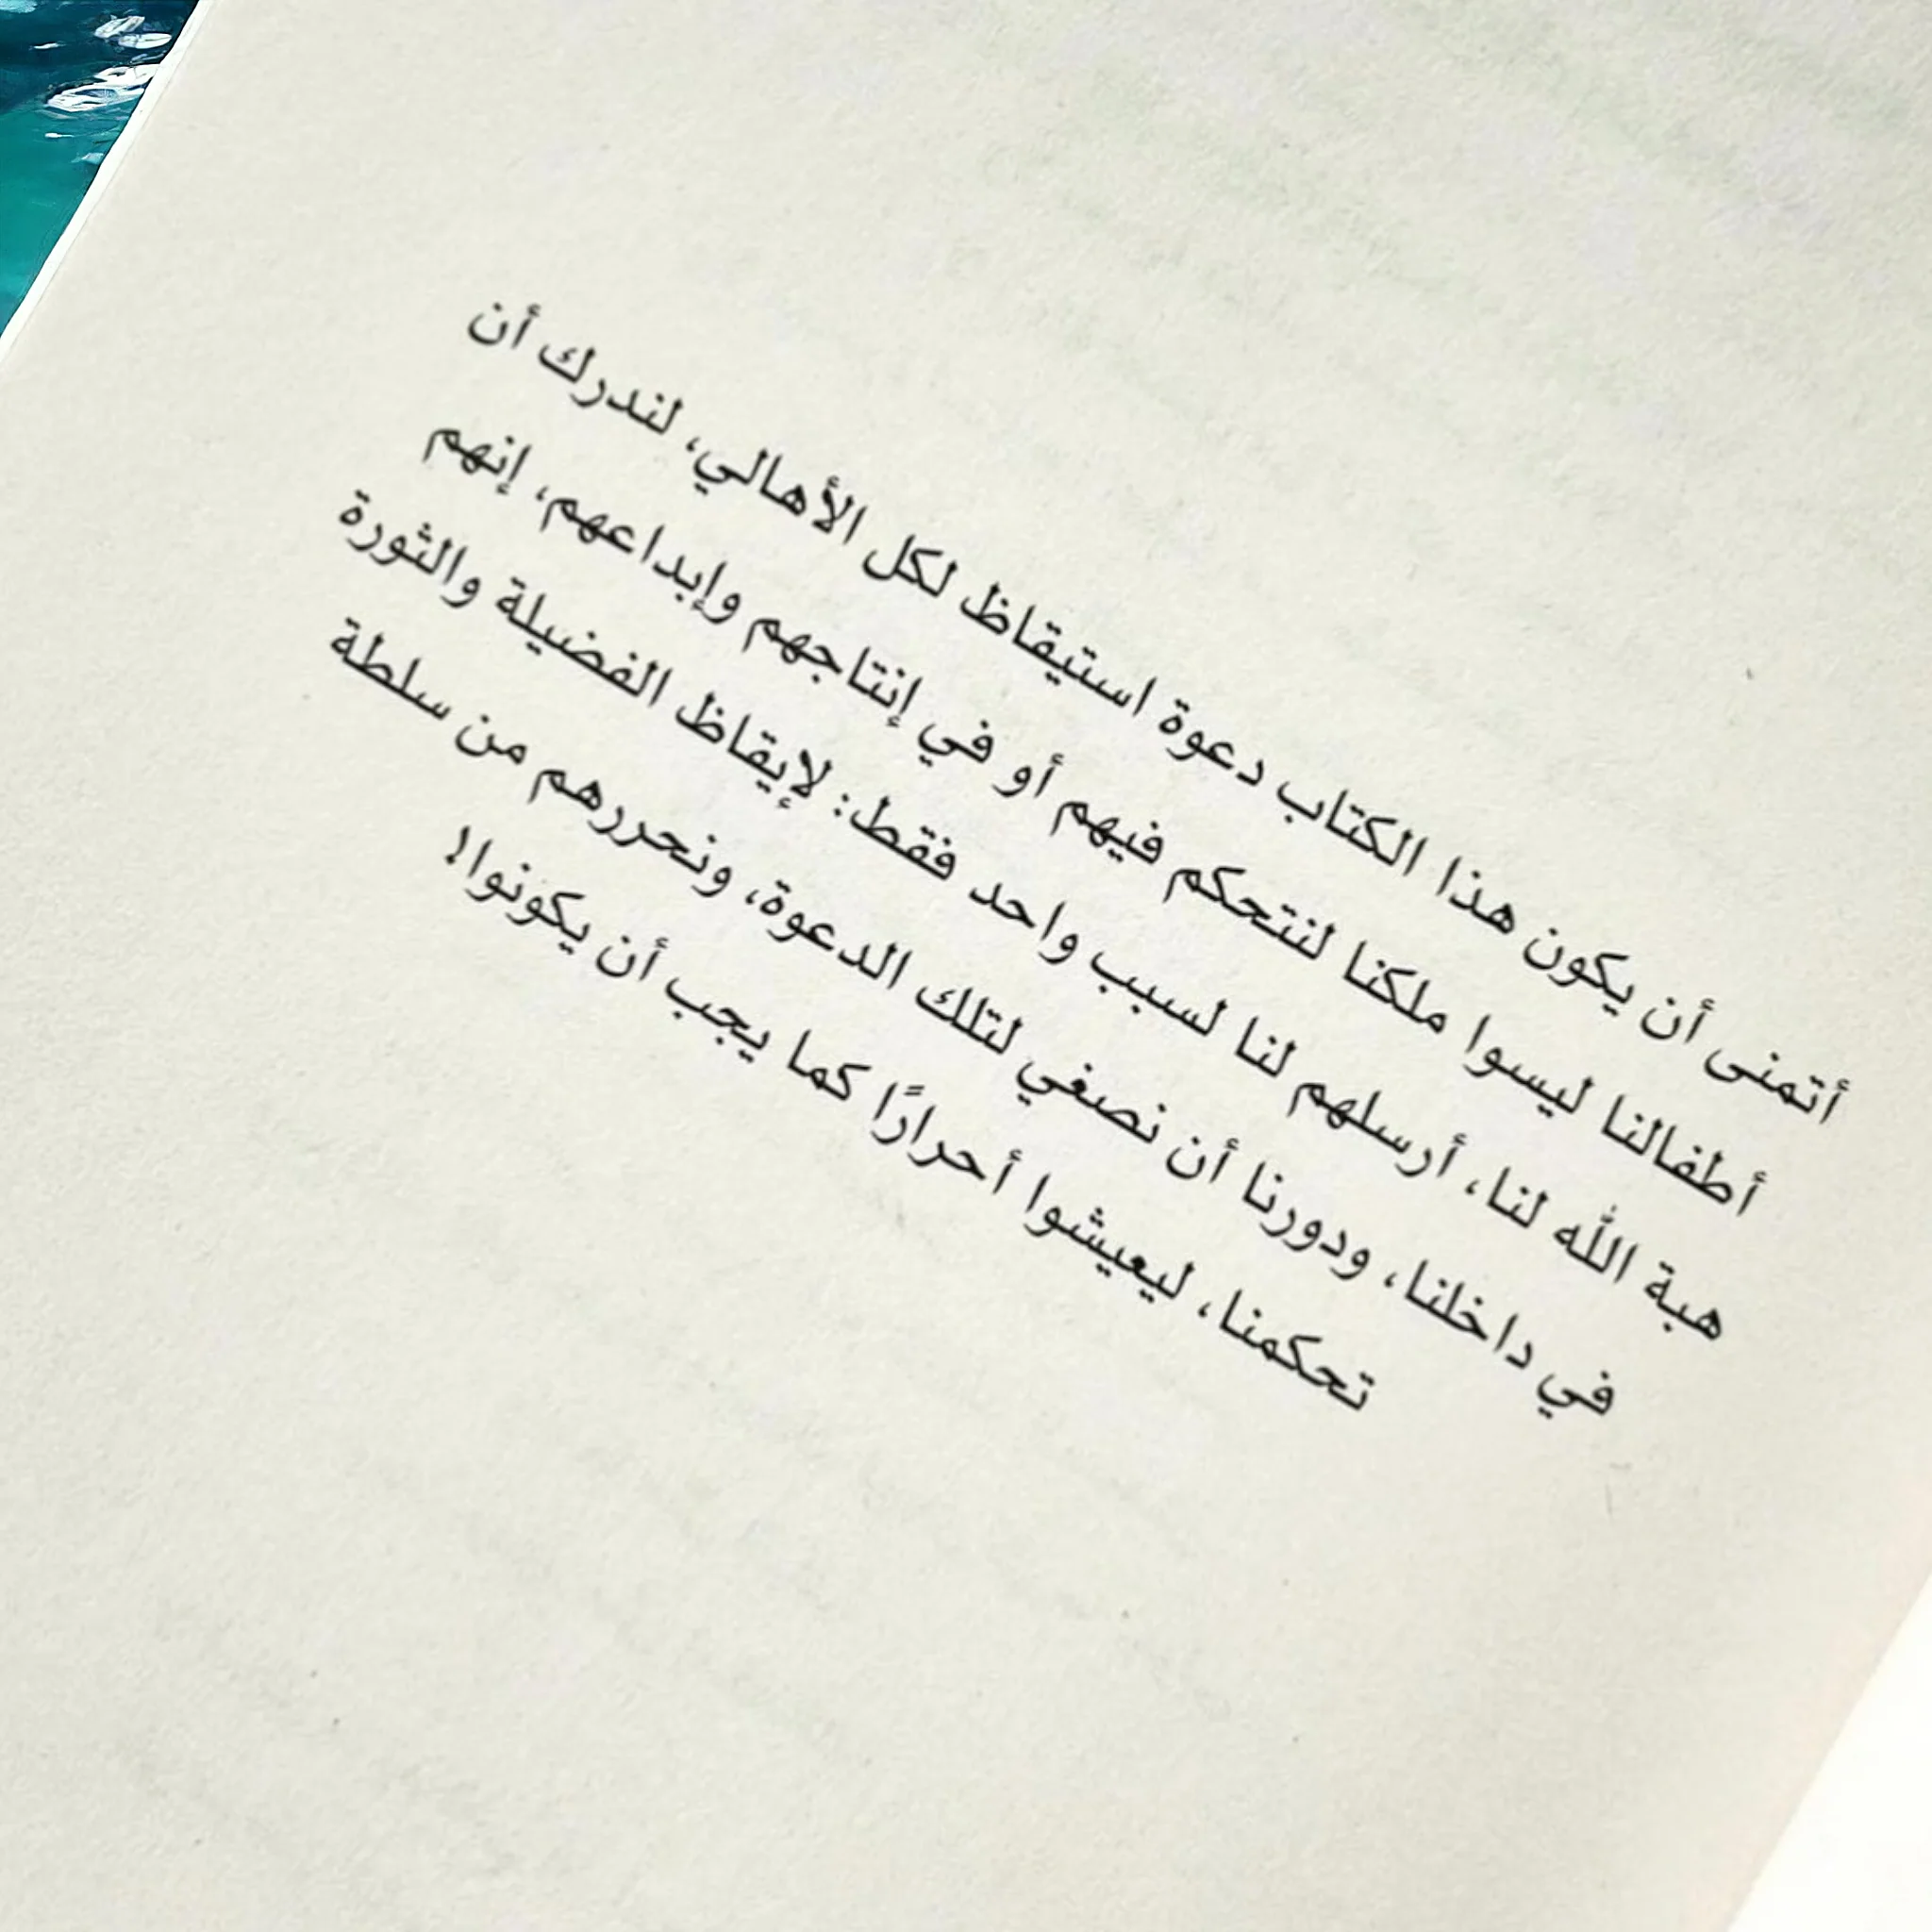 أتمنى أن يكون هذا الكتاب دعوة استيقاظ لكل الأهالي، لندرك أن
أطفالنا ليسوا ملكنا لنتحكم فيهم أو في إنتاجهم وإبداعهم، إنهم
هبة الله لنا، أرسلهم لنا لسبب واحد فقط: لإيقاظ الفضيلة والثورة
في داخلنا، ودورنا أن نصغي لتلك الدعوة، ونحررهم من سلطة
تحكمنا، ليعيشوا أحرارًا كما يجب أن يكونوا!